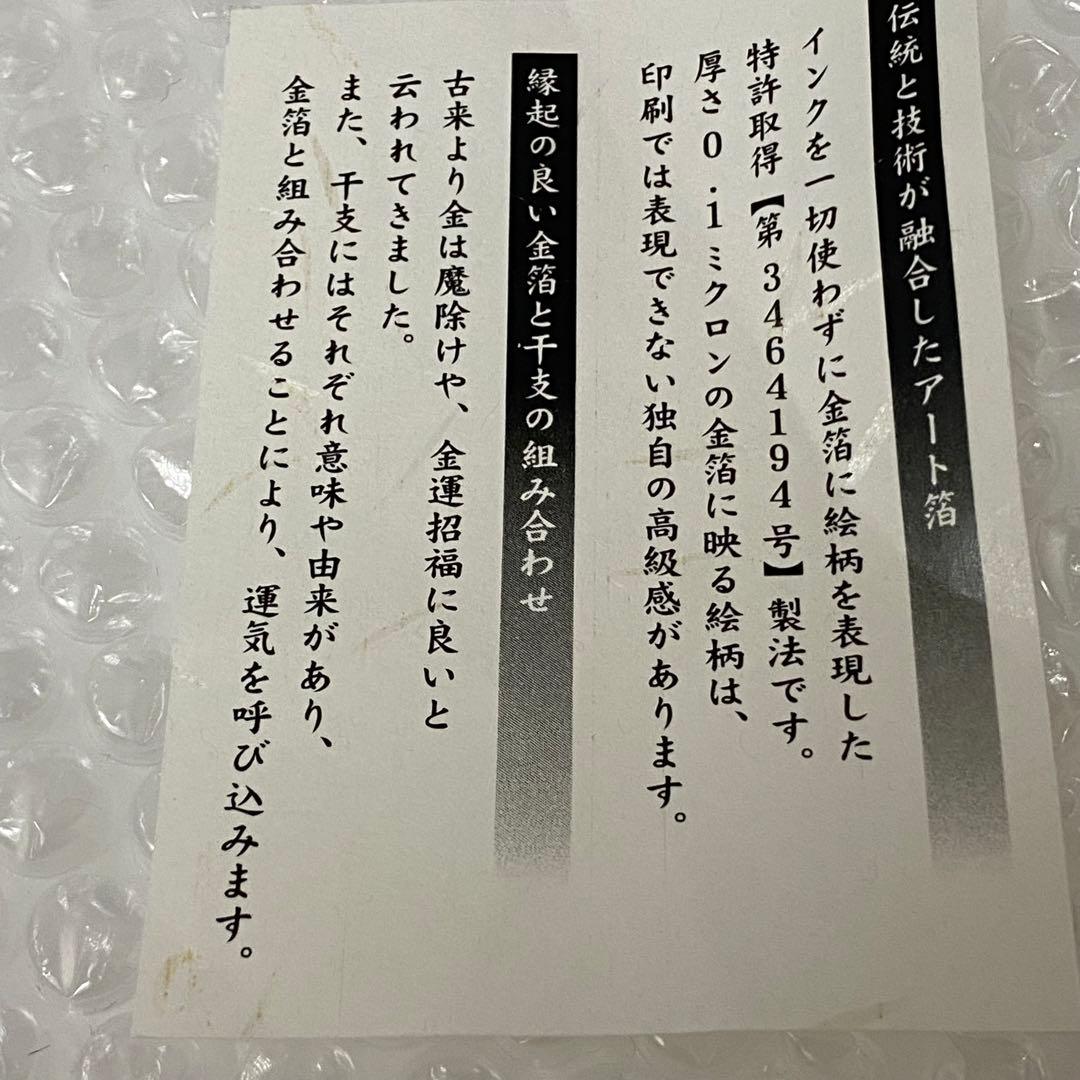 伝統と技術が融合したアート箔
インクを一切使わずに金箔に絵柄を表現した
特許取得【第3464194号】製法です。
厚さ0.1ミクロンの金箔に映る絵柄は、
印刷では表現できない独自の高級感があります。
縁起の良い金箔と干支の組み合わせ
古来より金は魔除けや、金運招福に良いと
云われてきました。
また、干支にはそれぞれ意味や由来があり、
金箔と組み合わせることにより、運気を呼び込みます。